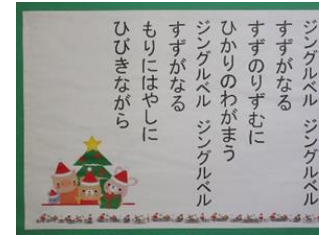 ジングルベル　ジングルベル
すずがなる
すずのりずむに
ひかりのわがまう
ジングルベル　ジングルベル
すずがなる
もりにはやしに
ひびきながら